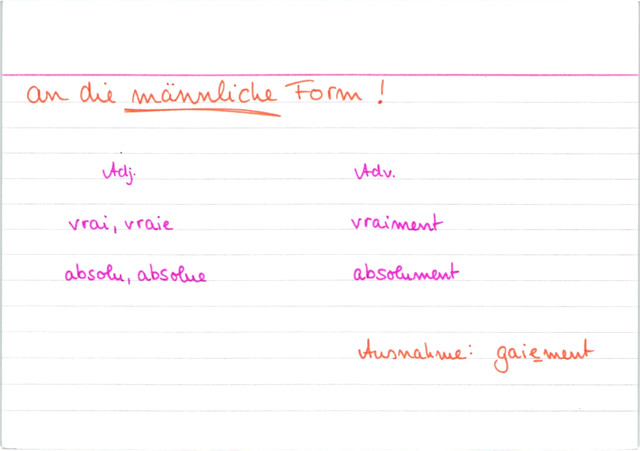 an die männliche Form !
Adj. Adv.
vrai, vraie vraiment
absolu, absolue absolument
Ausnahme: gaiement